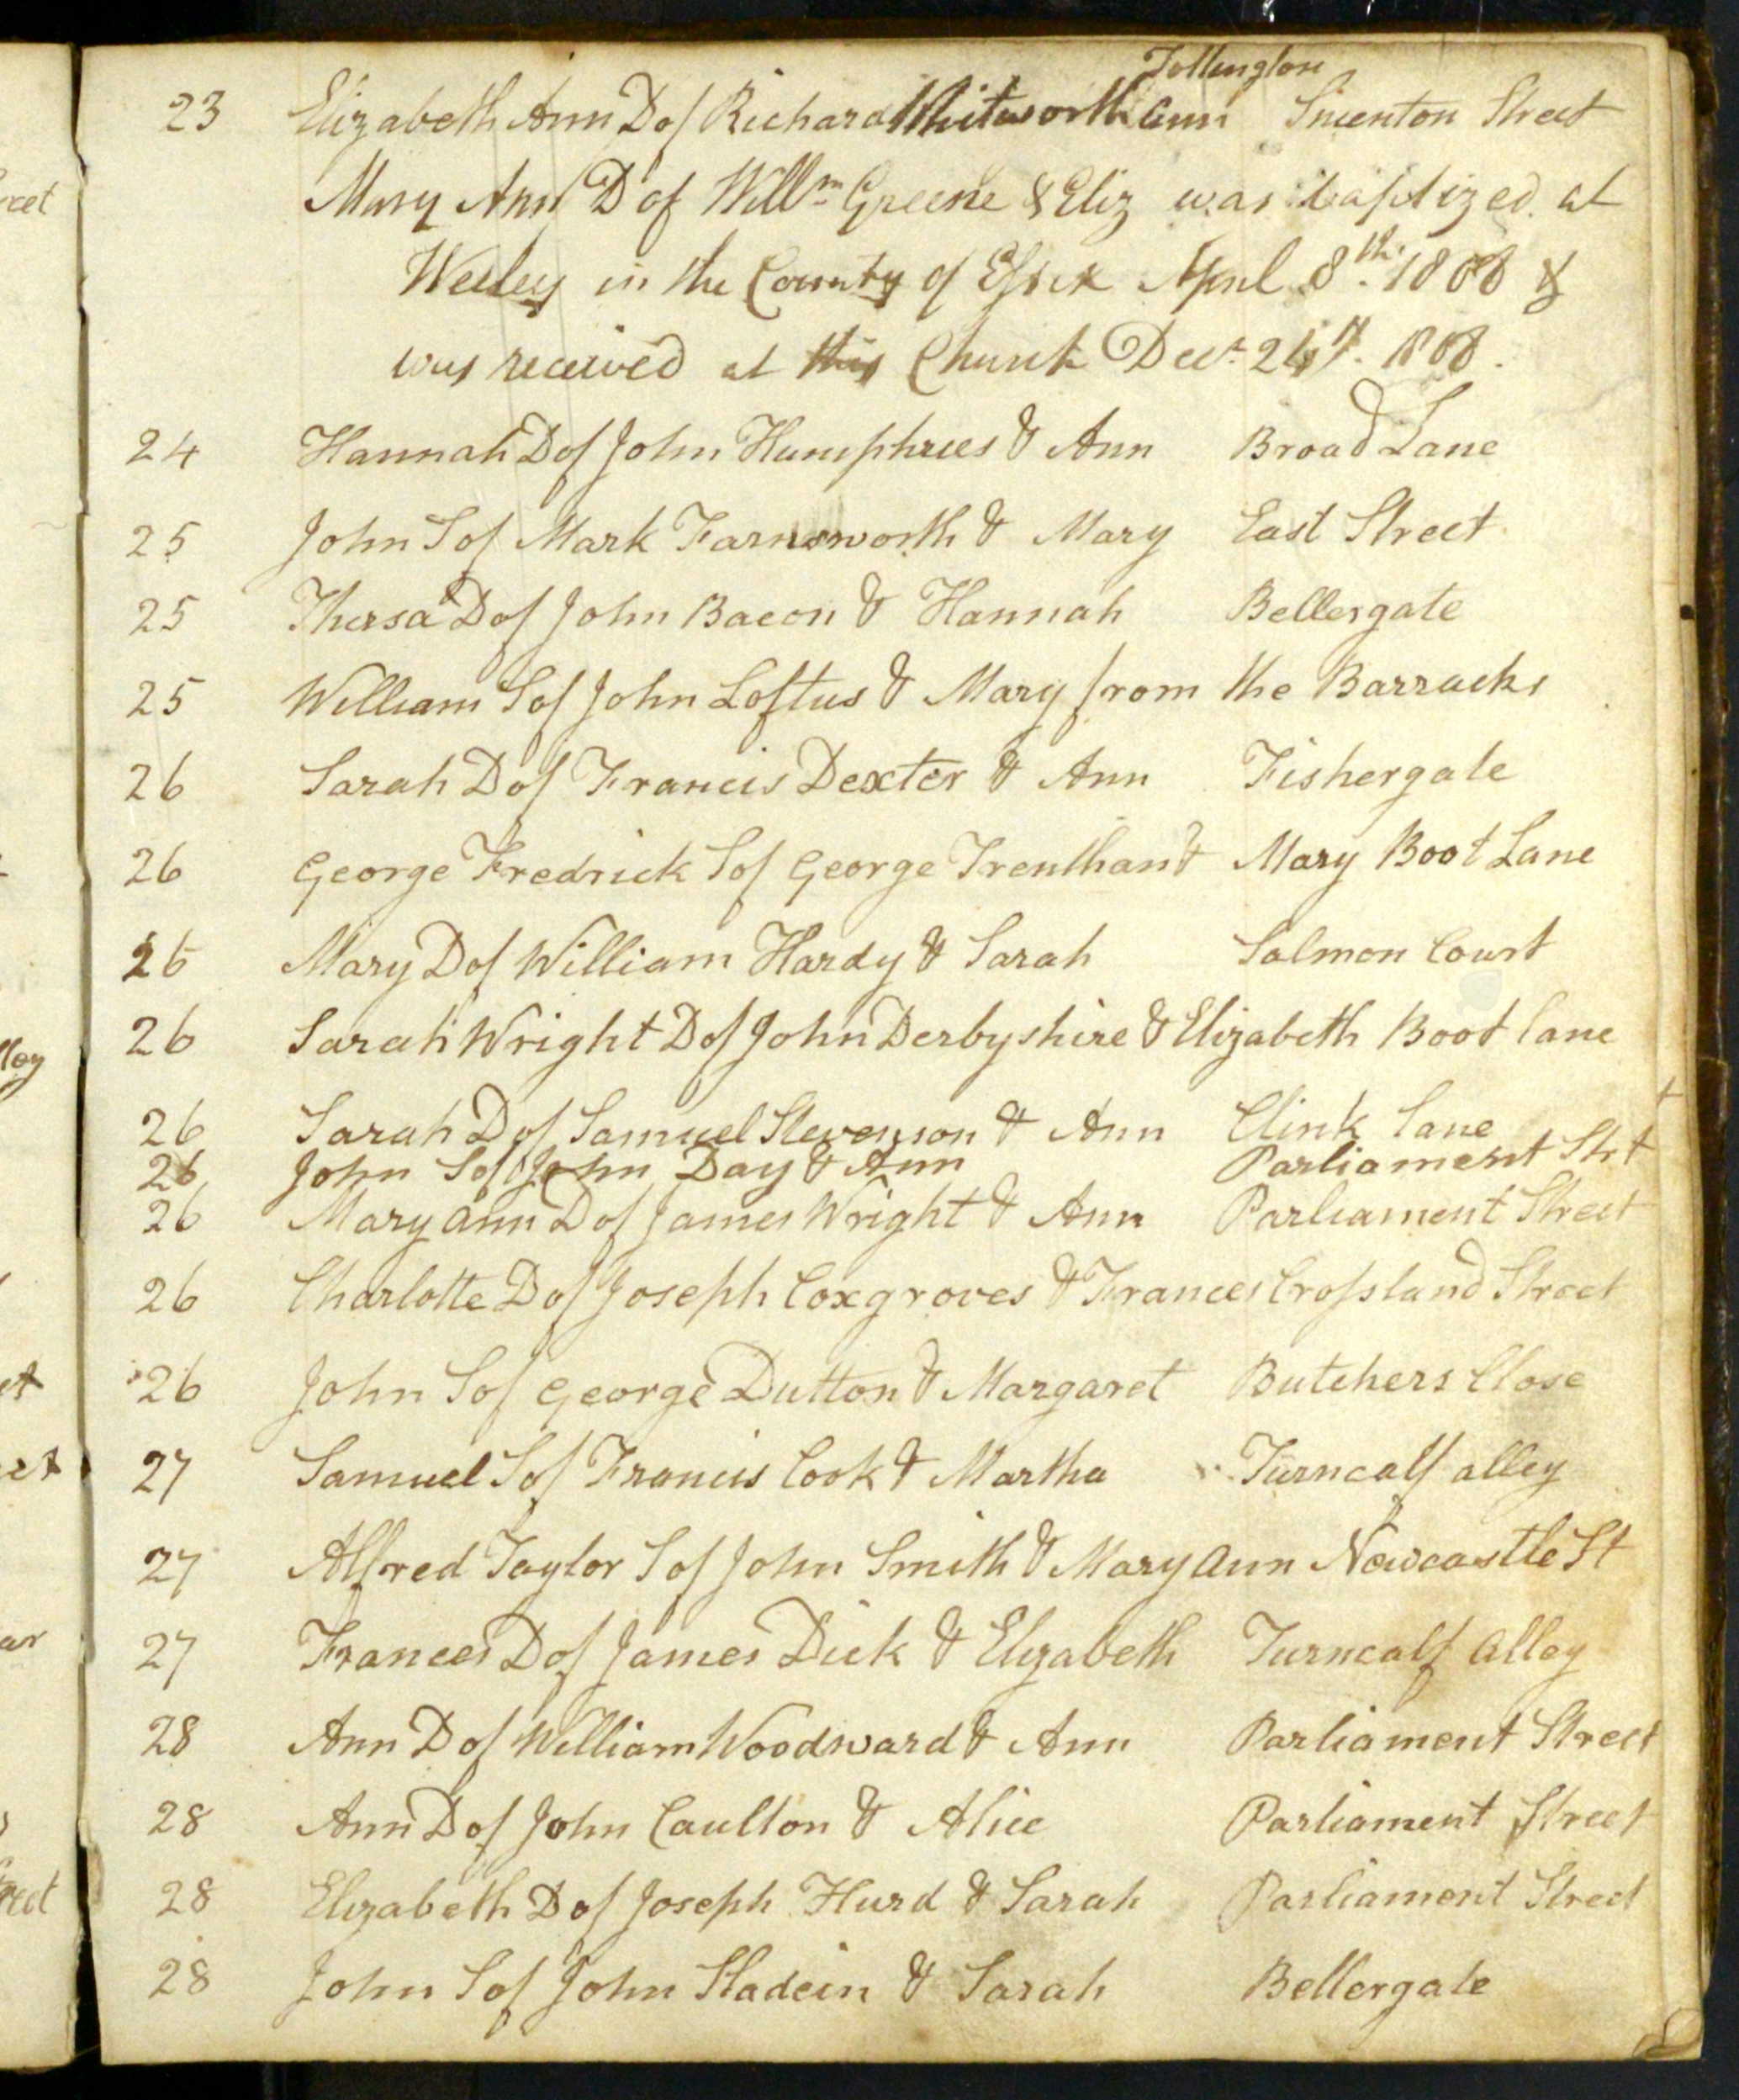 Tollington
23 Elizabeth Ann D of Richard Whitworth Ann Snenton Street
Mary Ann D of Willm Greene & Eliz was baptized at
Weeley in the County of Essex April 8th. 1808 &
was received at this Church Decr. 24th. 1808.
24 Hannah D of John Humphrees & Ann Broad Lane
25 John S of Mark Farnsworth & Mary East Street
25 Thersa D of John Bacon & Hannah Bellergate
25 William S of John Loftus & Mary from the Barracks
26 Sarah D of Francis Dexter & Ann Fishergate
26 George Fredrick S of George Trentham & Mary Boot Lane
26 Mary D of William Hardy & Sarah Salmon Court
26 Sarah Wright D of John Derbyshire & Elizabeth Boot lane
26 Sarah D of Samuel Stevenson & Ann Clink Lane
26 John S of John Day & Ann Parliament Strt
26 Mary ann D of James Wright & Ann Parliament Street
26 Charlotte D of Joseph Coxgroves & Frances Crossland Street
26 John S of George Dutton & Margaret Butchers Close
27 Samuel S of Francis Cook & Martha Turncalf alley
27 Alfred Taylor S of John Smith & Mary Ann Newcastle St
27 Frances D of James Dick & Elizabeth Turncalf Alley
28 Ann D of William Woodward & Ann Parliament Street
28 Ann D of John Caulton & Alice Parliament Street
28 Elizabeth D of Joseph Hurd & Sarah Parliament Street
28 John S of John Sladein & Sarah Bellergate